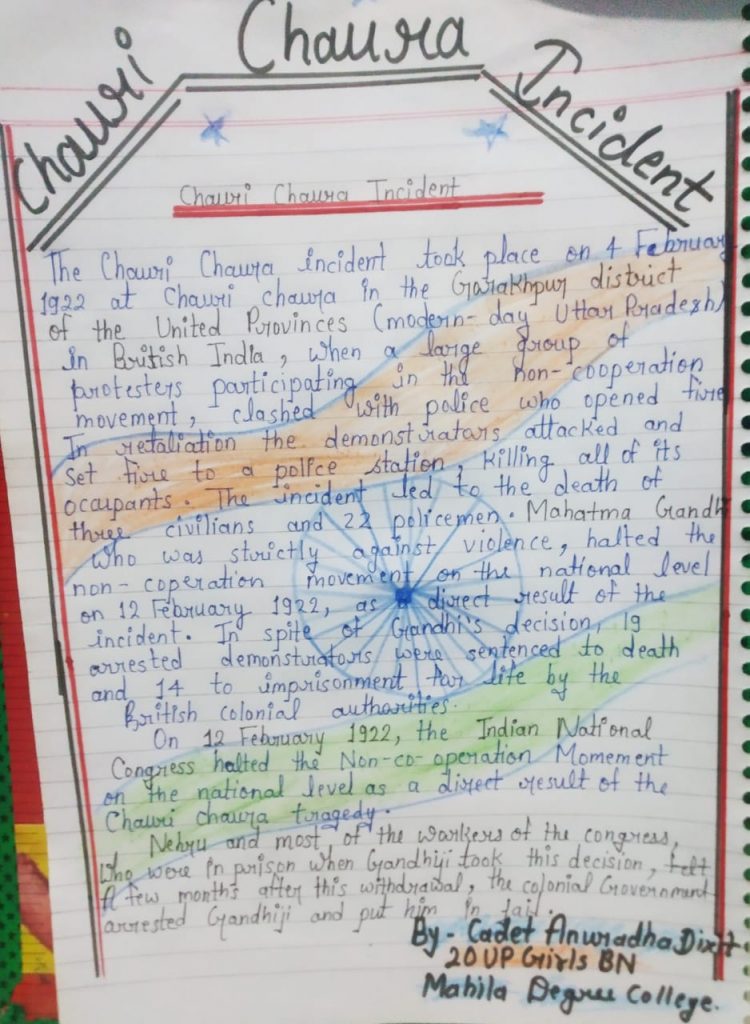 Chauri Chaura Incident
Chauri Chaura Incident
The Chauri Chaura incident took place on 4 February
1922 at Chauri chaura in the Gorakhpur district
of the United Provinces (modern-day Uttar Pradesh)
in British India, when a large group of
protesters participating in the non-cooperation
movement, clashed with police who opened fire
In retaliation the demonstrators attacked and
set fire to a police station, killing all of its
occupants. The incident led to the death of
three civilians and 22 policemen. Mahatma Gandhi
who was strictly against violence, halted the
non-coperation movement on the national level
on 12 February 1922, as a direct result of the
incident. In spite of Gandhi's decision, 19
arrested demonstrators were sentenced to death
and 14 to imprisonment for life by the
British colonial authorities.
On 12 February 1922, the Indian National
Congress halted the Non-co-operation Momement
on the national level as a direct result of the
Chauri chaura tragedy.
Nehru and most of the workers of the congress,
who were in prison when Gandhiji took this decision, felt
A few months after this withdrawal, the colonial Government
arrested Gandhiji and put him in jail.
By- Cadet Anuradha Dixit
20 UP Girls BN
Mahila Degree College.